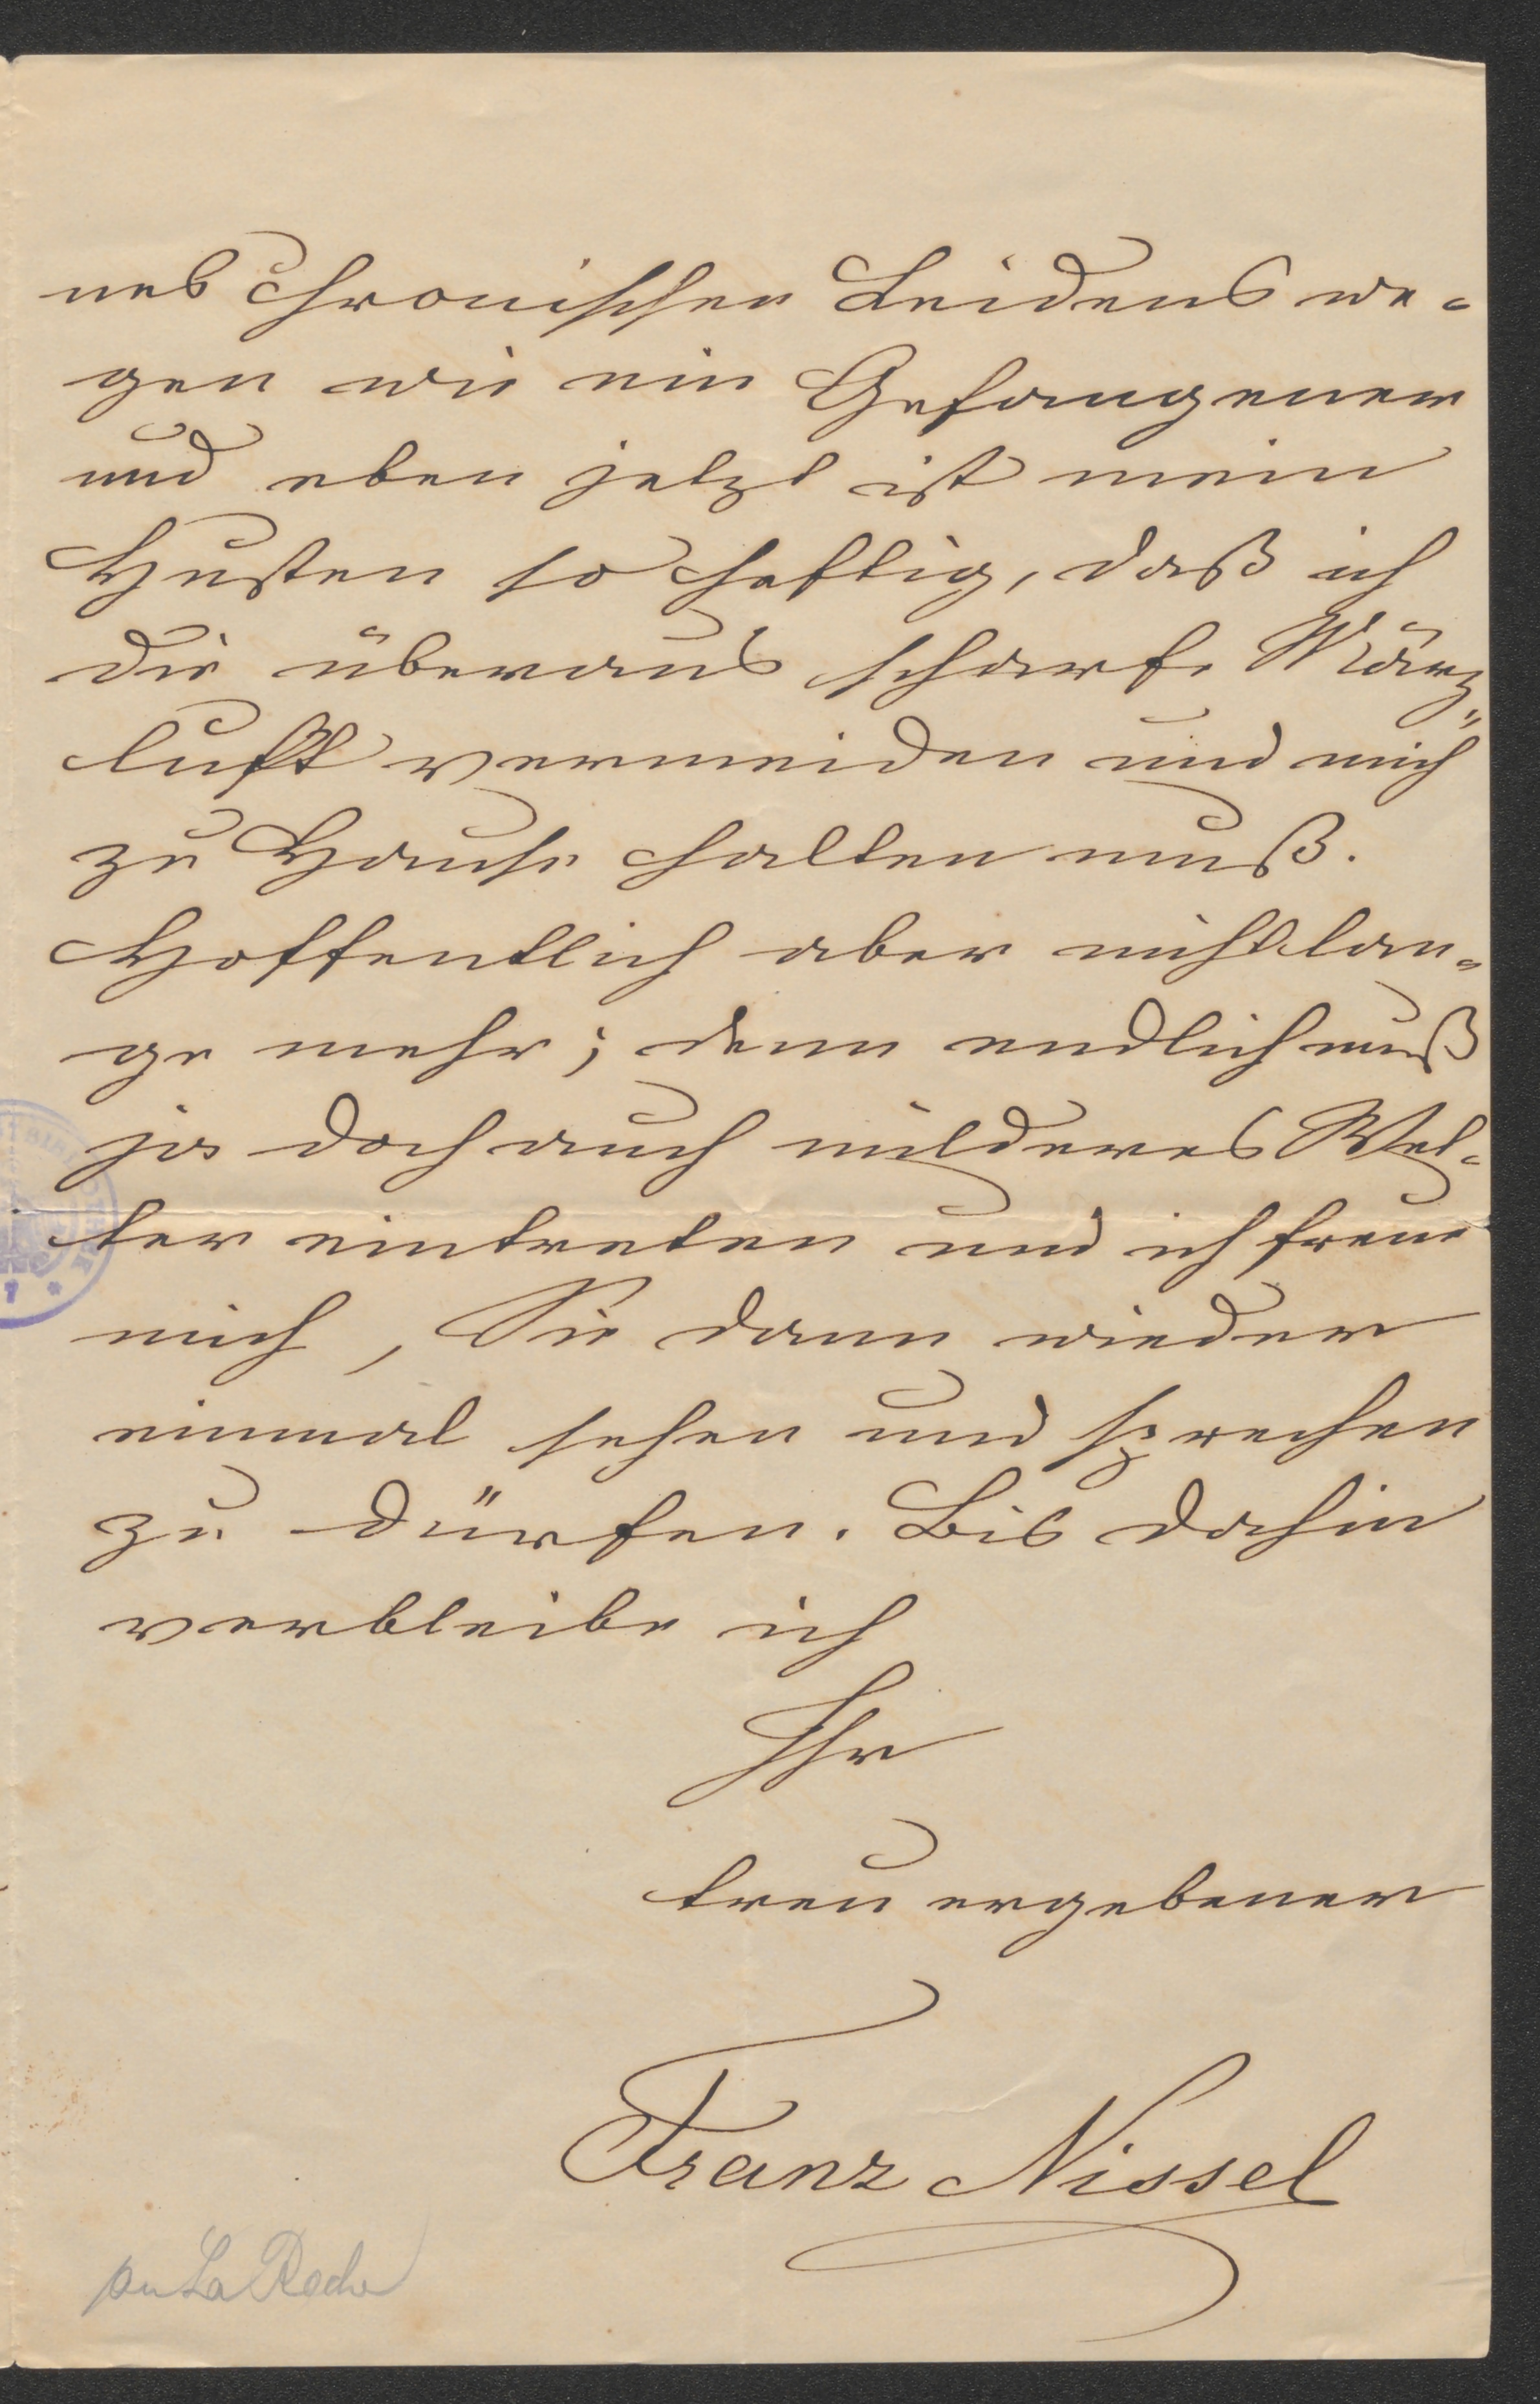 nes chronischen Leidens we-
gen wie ein Gefangener
und eben jetzt ist mein
Husten so heftig, daß ich
die überaus scharfe März-
luft vermeiden und mich
zu Hause halten muß.
Hoffentlich aber nicht lan-
ge mehr; denn endlich muß
ja doch auch milderes Wet-
ter eintreten und ich freue
mich, Sie dann wieder
einmal sehen und sprechen
zu dürfen. Bis dahin
verbleibe ich
Ihr
treu ergebener
Franz Nissel
an La Roche